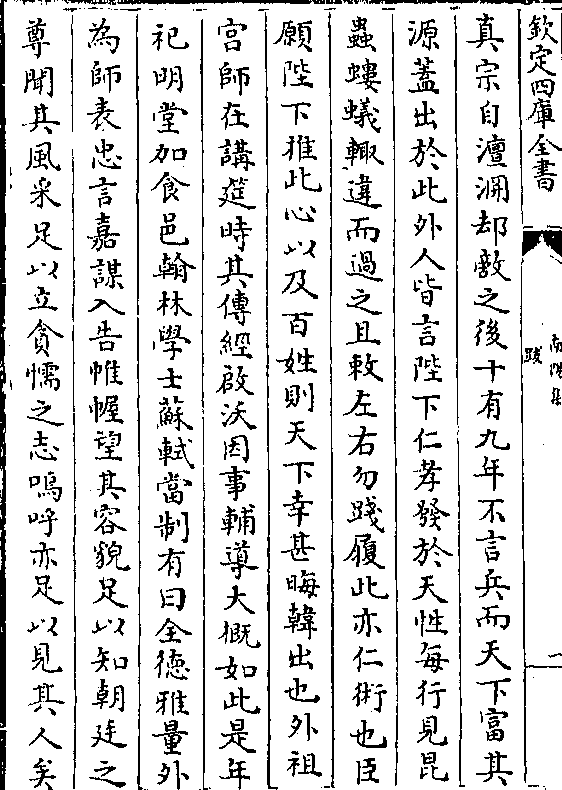 欽定四庫全書
南澗集
跋
一
真宗自澶淵却敵之後十有九年不言兵而天下富其
源蓋出於此外人皆言陛下仁孝發於天性每行見昆
蟲螻蟻輙違而過之且敕左右勿踐履此亦仁術也臣
願陛下推此心以及百姓則天下幸甚晦韓出也外祖
宫師在講筵時其傳經啟沃因事輔導大概如此是年
祀明堂加食邑翰林學士蘇軾當制有曰全徳雅量外
為師表忠言嘉謀入告帷幄望其容貌足以知朝廷之
尊聞其風采足以立貪懦之志嗚呼亦足以見其人矣